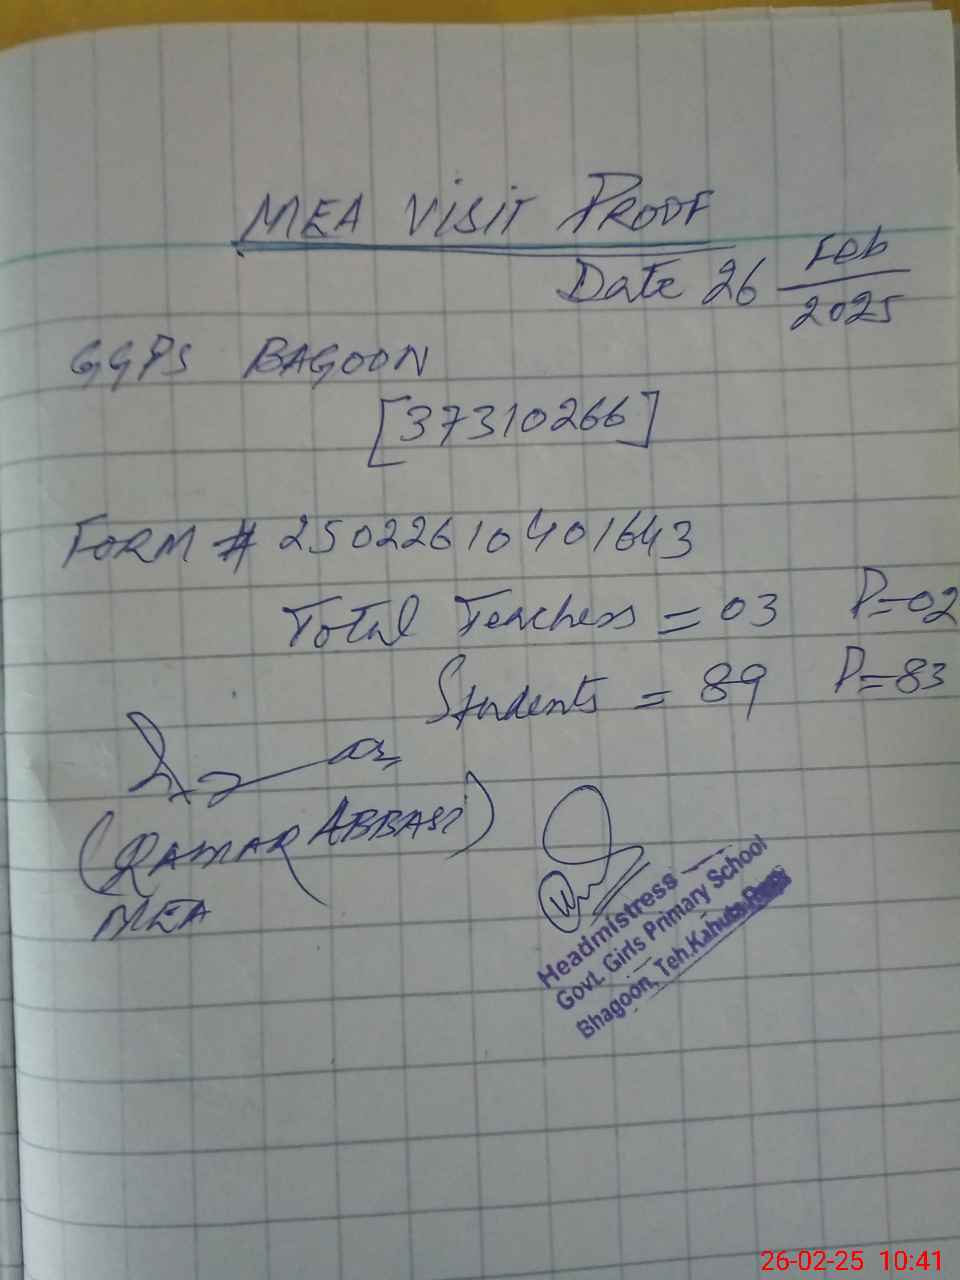 MEA VISIT PROOF
Date 26 Feb
2025
GGPS BAGOON
[37310266]
FORM # 25022610401643
Total Teachers = 03 P=02
Students = 89 P=83
(QAMAR ABBASI)
MEA
Headmistress
Govt. Girls Primary School
Bhagoon, Teh.Kahuta
26-02-25 10:41